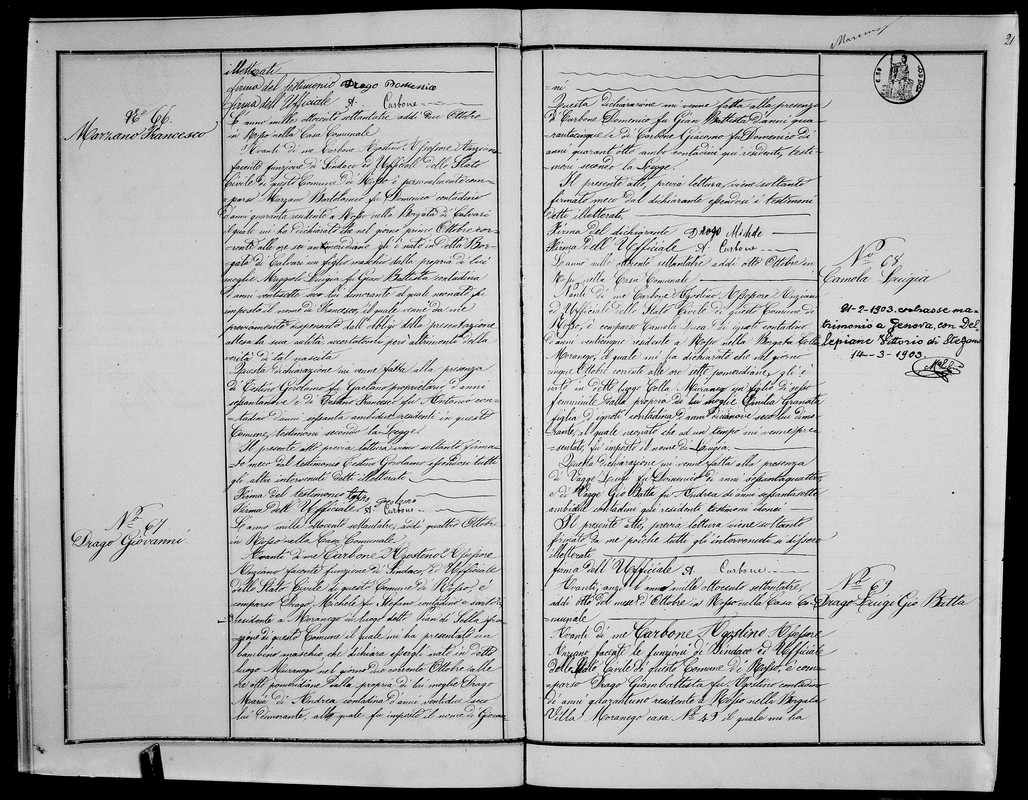 illetterati
firma del testimonio Drago Domenico
firma dell'Ufficiale A. Carbone
No. 66.
Marzano Francesco
L'anno mille ottocento settantatre addi due Ottobre
in Rosso nella Casa Comunale
Avanti di me Carbone Agostino Assessore Anziano
facente funzioni di Sindaco ed Ufficiale dello Stato
Civile di questo Comune di Rosso è personalmente com-
parso Marzano Bartolomeo fu Domenico contadino
d'anni quaranta residente a Rosso nella Borgata di Calvari
il quale mi ha dichiarato che nel giorno primo Ottobre cor-
rente alle ore sei antimeridiane gli è nato in detta Bor-
gata di Calvari un figlio maschio dalla propria di lui
moglie Luigia fu Gian Battista contadina
d'anni ventisette seco lui dimorante al quale neonato fu
imposto il nome di Francesco, il quale venne da me
provvisoriamente dispensato dall'obbligo della presentazione
attesa la sua salute accertatomi però altrimenti della
verità di tal nascita
Questa dichiarazione mi venne fatta alla presenza
di Cestino Girolamo fu Gaetano proprietario d'anni
sessantanove e di Cestino Francesco fu Antonio con-
tadino d'anni sessanta ambidue residenti in questo
Comune, testimoni secondo la Legge.
Il presente atto previa lettura viene soltanto firma-
to meco dal testimonio Cestino Girolamo essendosi tutti
gli altri intervenuti detti illetterati
Firma del testimonio
Firma dell'Ufficiale A. Carbone
No. 67
Drago Giovanni
L'anno mille ottocento settantatre, addi quattro Ottobre
in Rosso nella Casa Comunale.
Avanti di me Carbone Agostino Assessore
Anziano facente funzione di Sindaco, ed Ufficiale
dello Stato Civile di questo Comune di Rosso, è
comparso Drago Michele fu Stefano contadino e sarto
residente a Moranego in luogo detto Pian di Sella fra-
zione di questo Comune il quale mi ha presentato un
bambino maschio che dichiara essergli nato in detto
luogo Moranego nel giorno due corrente Ottobre alle
ore otto pomeridiane dalla propria di lui moglie Drago
Maria di Andrea contadina d'anni ventidue seco
lui dimorante, al quale fu imposto il nome di Giovan-
Moreno
21
ni
Questa dichiarazione mi venne fatta alla presenza
di Carbone Domenico fu Gian Battista d'anni qua-
rantacinque e di Carbone Giacomo fu Domenico di
anni quarant'otto ambi contadini qui residenti, testi-
moni secondo la Legge.
Il presente atto, previa lettura, viene soltanto
firmato meco dal dichiarante essendosi i testimoni
detti illetterati
Firma del dichiarante Drago Michele
Firma dell'Ufficiale A. Carbone
No. 68
Camola Luigia
L'anno mille ottocento settantatre addi otto Ottobre in
Rosso nella Casa Comunale
Avanti di me Carbone Agostino Assessore Anziano
ed Ufficiale dello Stato Civile di questo Comune di
Rosso, è comparso Camola Luca di ignoti contadino
d'anni venticinque residente a Rosso nella Borgata Colla
Moranego, il quale mi ha dichiarato che nel giorno
cinque Ottobre corrente alle ore sette pomeridiane gli è
nato in detto luogo Colla Moranego un figlio di sesso
femminile dalla propria di lui moglie Emilia Granata
figlia d'ignoti contadina d'anni diciannove seco lui dimo-
rante, al quale neonato che ad un tempo mi venne pre-
sentato, fu imposto il nome di Luigia.
Questa dichiarazione mi venne fatta alla presenza
di Vaggi fu Domenico di anni settantaquattro
e di Vaggi Gio Batta fu Andrea di anni sessantasette
ambidue contadini qui residenti testimoni idonei
Il presente atto, previa lettura viene soltanto
firmato da me poiché tutti gl'intervenuti si dissero
illetterati
firma dell'Ufficiale A. Carbone
21-2-1903. contrasse ma-
trimonio a Genova, con Del-
lepiane Vittorio di Stefano
14-3-1903.
No. 69
Drago Luigi Gio Batta
Avanti, anzi l'anno mille ottocento settantatre,
addi otto del mese d'Ottobre in Rosso nella Casa Co-
munale
Avanti di me Carbone Agostino Assessore
Anziano facente le funzioni di Sindaco ed Ufficiale
dello Stato Civile di questo Comune di Rosso, è com-
parso Drago Giambattista fu Agostino contadino
di anni quarantuno residente a Rosso nella Borgata
Villa Moranego casa No. 43 il quale mi ha